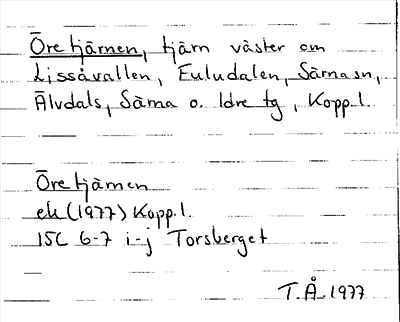 Öretjärnen, tjärn väster om
Lissåvallen, Euludalen, Särna sn,
Älvdals, Särna o. Idre tg, Kopp.l.
Öretjärnen
ek (1977) Kopp.l.
15C 6-7 i-j Torsberget
T.Å. 1977